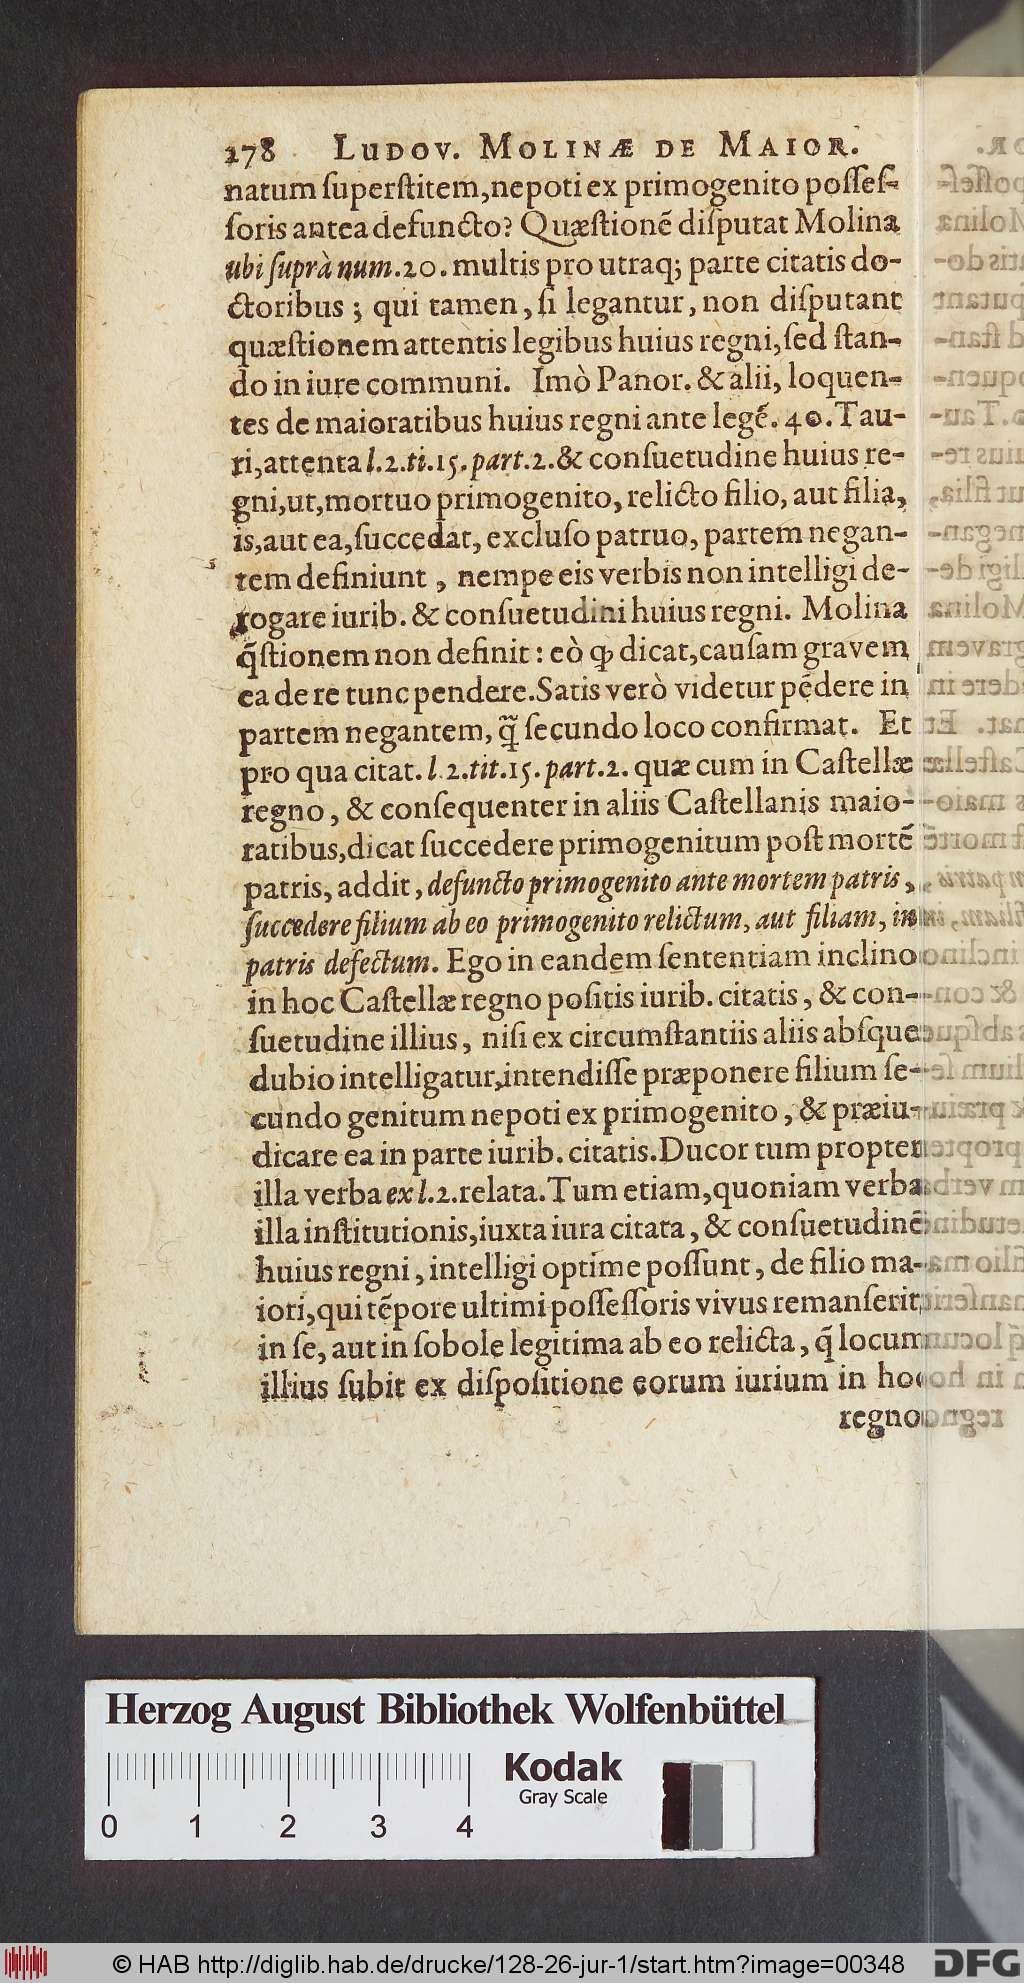 278 LUDOV. MOLINÆ DE MAIOR.
natum ſuperſtitem, nepoti ex primogenito poſſeſ-
ſoris antea defuncto? Quæſtionē diſputat Molina
ubi ſuprà num. 20. multis pro utraq; parte citatis do-
ctoribus; qui tamen, ſi legantur, non diſputant
quæſtionem attentis legibus huius regni, ſed ſtan-
do in iure communi. Imò Panor. & alii, loquen-
tes de maioratibus huius regni ante legē. 40. Tau-
ri, attenta l. 2. ti. 15. part. 2. & conſuetudine huius re-
gni, ut, mortuo primogenito, relicto filio, aut filia,
is, aut ea, ſuccedat, excluſo patruo, partem negan-
tem definiunt, nempe eis verbis non intelligi de-
rogare iurib. & conſuetudini huius regni. Molina
q̃ſtionem non definit: eò ꝙ dicat, cauſam gravem
ea de re tunc pendere. Satis verò videtur pēdere in
partem negantem, q̃ ſecundo loco confirmat. Et
pro qua citat. l. 2. tit. 15. part. 2. quæ cum in Caſtellæ
regno, & conſequenter in aliis Caſtellanis maio-
ratibus, dicat ſuccedere primogenitum poſt mortē
patris, addit, defuncto primogenito ante mortem patris,
ſuccedere filium ab eo primogenito relictum, aut filiam, in
patris defectum. Ego in eandem ſententiam inclino
in hoc Caſtellæ regno poſitis iurib. citatis, & con-
ſuetudine illius, niſi ex circumſtantiis aliis abſque
dubio intelligatur, intendiſſe præponere filium ſe-
cundo genitum nepoti ex primogenito, & præiu-
dicare ea in parte iurib. citatis. Ducor tum propter
illa verba ex l. 2. relata. Tum etiam, quoniam verba
illa inſtitutionis, iuxta iura citata, & conſuetudinē
huius regni, intelligi optime poſſunt, de filio ma-
iori, qui tēpore ultimi poſſeſſoris vivus remanſerit,
in ſe, aut in ſobole legitima ab eo relicta, q̃ locum
illius ſubit ex diſpoſitione eorum iurium in hoc
regno
Herzog August Bibliothek Wolfenbüttel
Kodak
Gray Scale
0 1 2 3 4
© HAB http://diglib.hab.de/drucke/128-26-jur-1/start.htm?image=00348
DFG